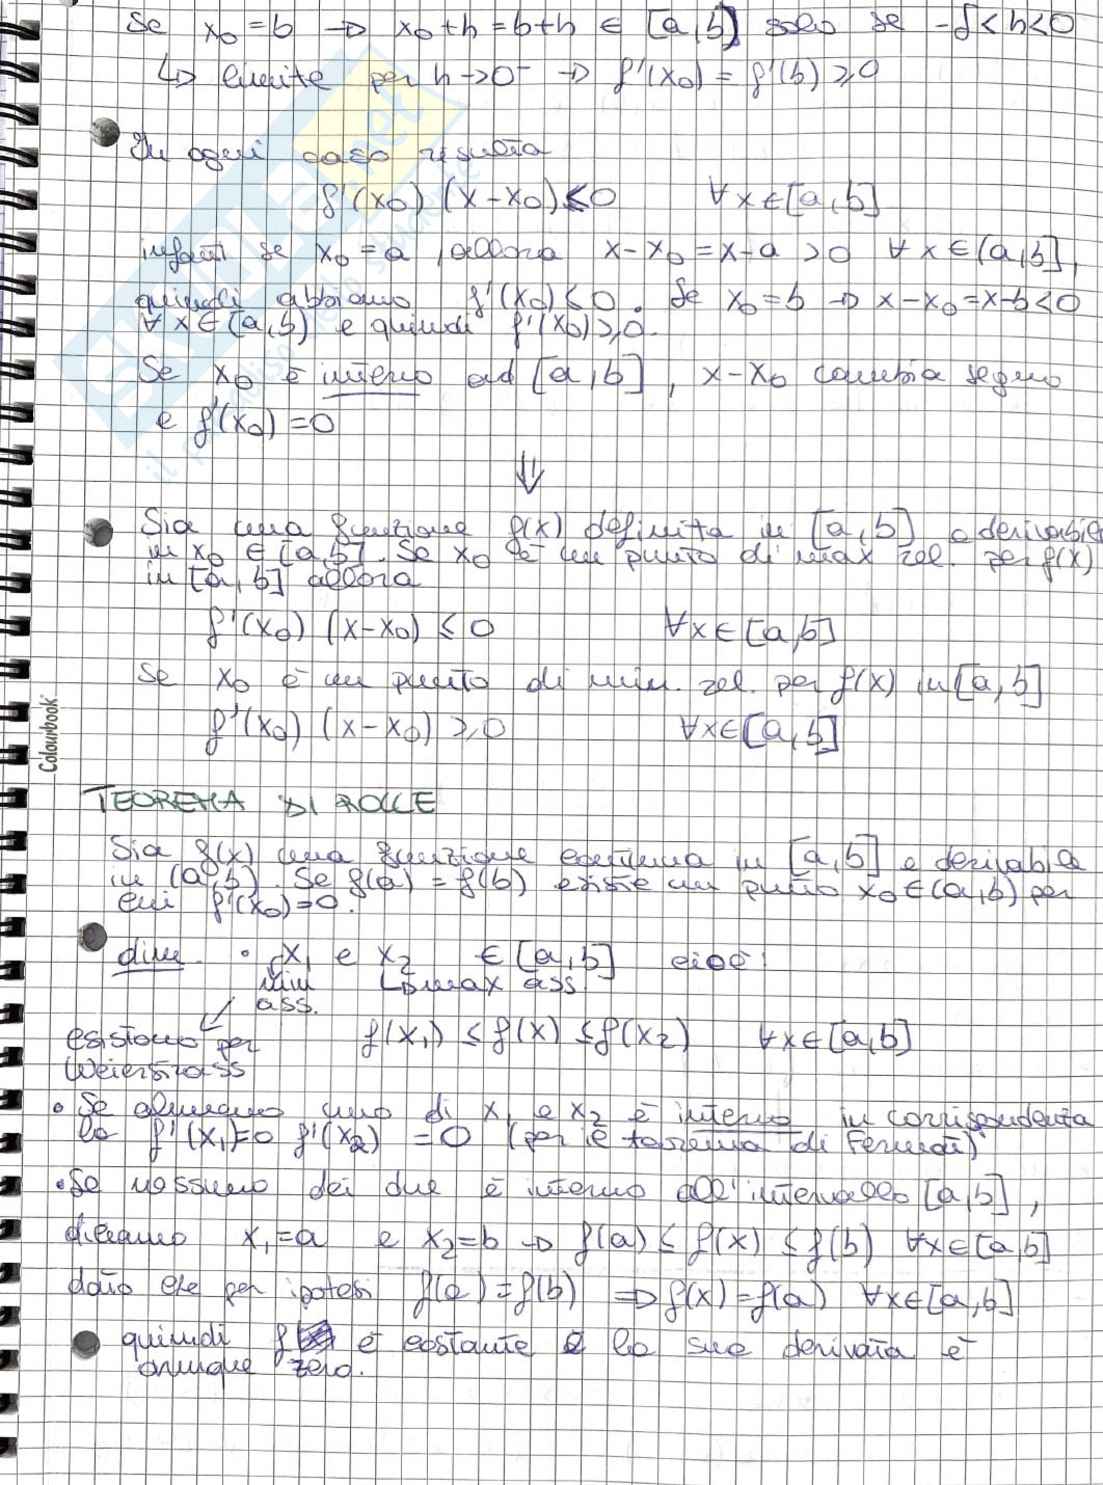 Se x₀ = b → x₀+h = b+h ∈ [a,b] solo se -δ<h<0
↳ limite per h→0⁻ → f'(x₀) = f'(b) ≥0
In ogni caso risulta
f'(x₀) (x-x₀) ≤ 0 ∀x∈[a,b]
infatti se x₀ = a, allora x-x₀ = x-a >0 ∀x∈(a,b],
quindi abbiamo f'(x₀) ≤ 0. Se x₀=b → x-x₀=x-b<0
∀x∈[a,b) e quindi f'(x₀) ≥0.
Se x₀ è interno ad [a,b], x-x₀ cambia segno
e f'(x₀) = 0
⇓
Sia una funzione f(x) definita in [a,b] e derivabile
in x₀ ∈ [a,b]. Se x₀ è un punto di max rel. per f(x)
in [a,b] allora
f'(x₀) (x-x₀) ≤ 0 ∀x∈[a,b]
Se x₀ è un punto di min. rel. per f(x) in [a,b]
f'(x₀) (x-x₀) ≥0 ∀x∈[a,b]
Colourbook
TEOREMA DI ROLLE
Sia f(x) una funzione continua in [a,b] e derivabile
in (a,b). Se f(a) = f(b) esiste un punto x₀∈(a,b) per
cui f'(x₀)=0.
dim. • x₁ e x₂ ∈ [a,b] cioè:
min ↳max ass.
ass.
esistono per f(x₁) ≤ f(x) ≤ f(x₂) ∀x∈[a,b]
Weierstrass
• Se almeno uno di x₁ e x₂ è interno in corrispondenza
la f'(x₁)=0 f'(x₂) = 0 (per il teorema di Fermat)
• Se nessuno dei due è interno all'intervallo [a,b],
diciamo x₁=a e x₂=b → f(a) ≤ f(x) ≤ f(b) ∀x∈[a,b]
dato che per ipotesi f(a)=f(b) ⇒ f(x)=f(a) ∀x∈[a,b]
quindi f è costante e la sua derivata è
ovunque zero.